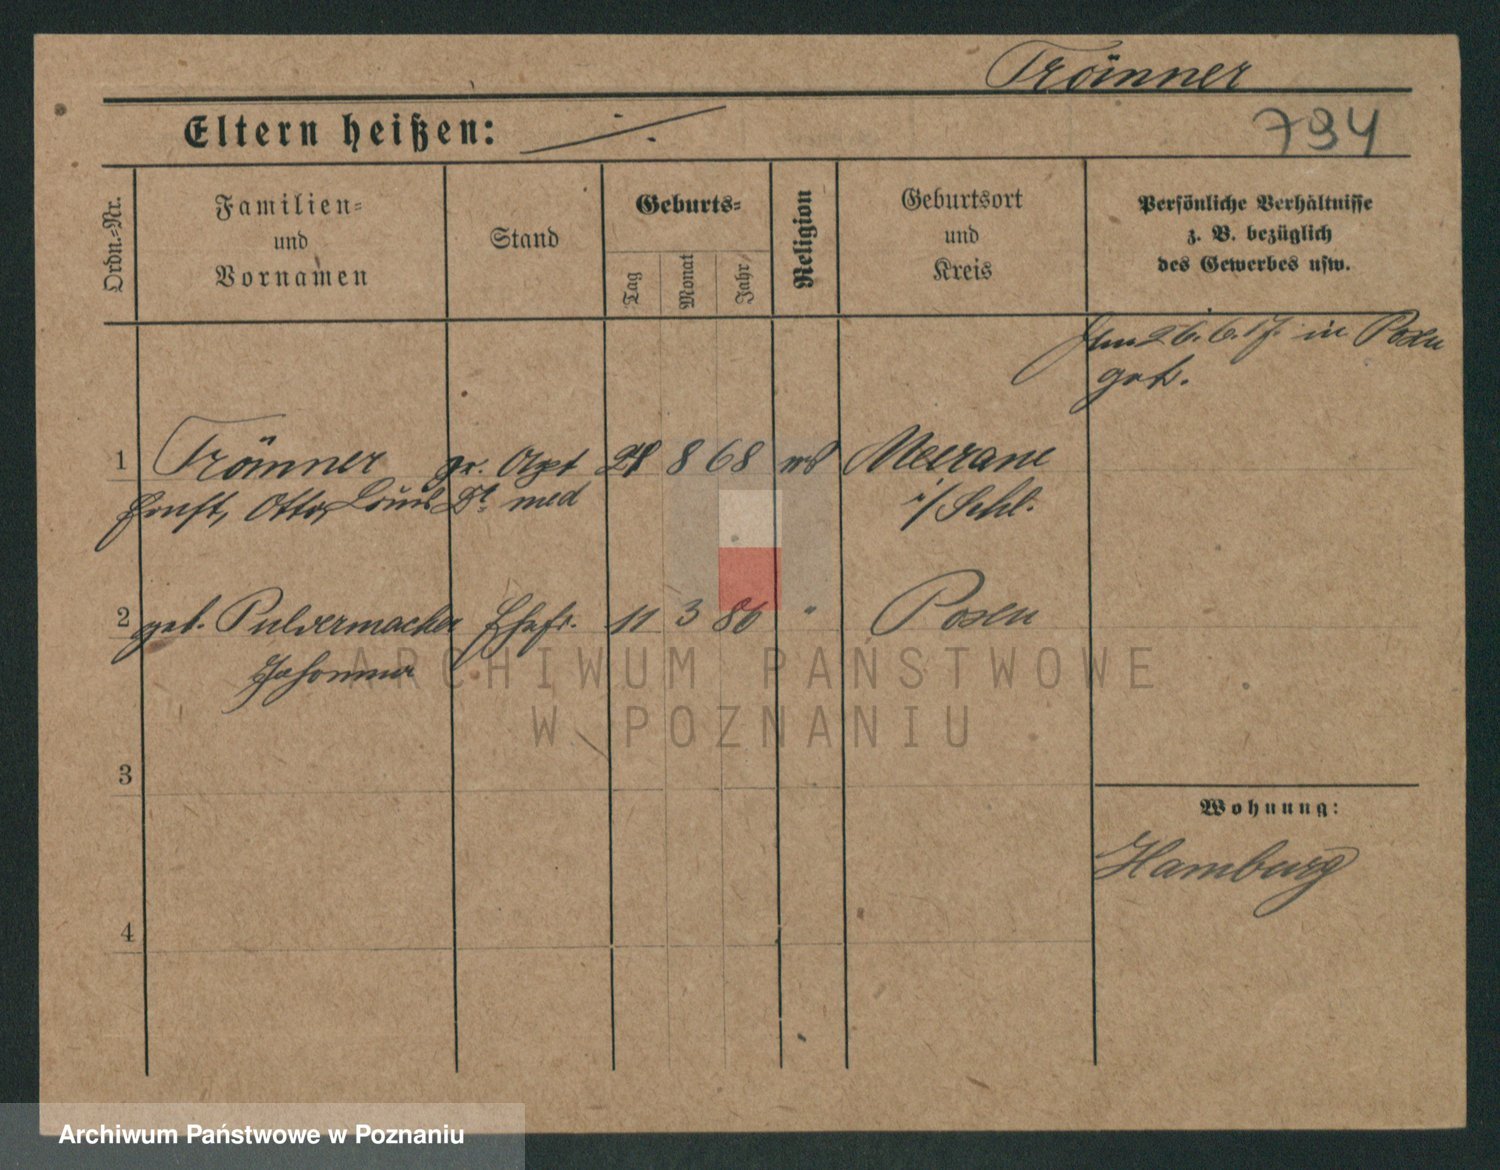 Trömner
794
Eltern heißen: ·/·
Ordn.-Nr.
Familien-
und
Vornamen
Stand
Geburts-
Tag
Monat
Jahr
Religion
Geburtsort
und
Kreis
Persönliche Verhältnisse
z. B. bezüglich
des Gewerbes usw.
26.6.17. in Posen
getr.
1 Trömner pr. Arzt 8 68 Meerane
Ernst, Otto, Louis Dr. med i/Schl.
2 geb. Pulvermacher Ehefr. 11 3 80 " Posen
Johanna
3
Wohnung:
Hamburg
4
ARCHIWUM PAŃSTWOWE
W POZNANIU
Archiwum Państwowe w Poznaniu